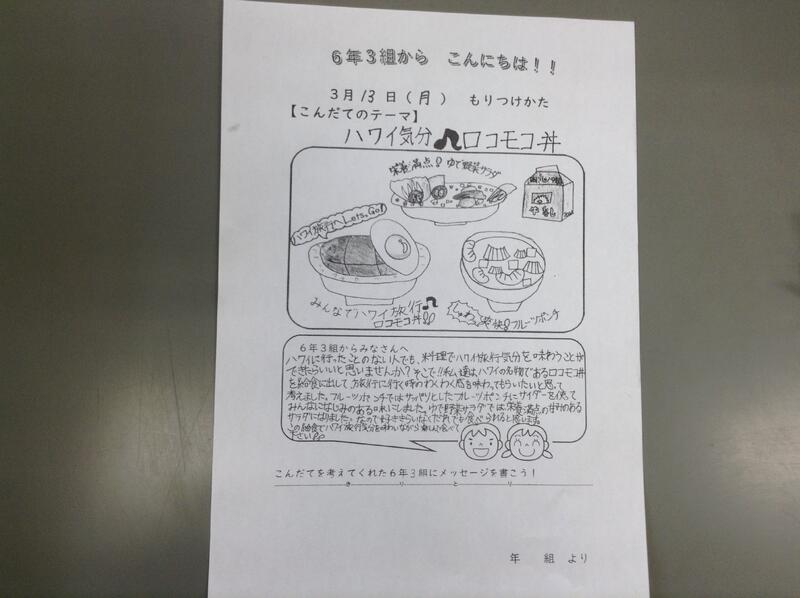 6年3組から こんにちは！！
3月13日（月） もりつけかた
【こんだてのテーマ】
ハワイ気分♪ロコモコ丼
栄養満点!ゆで野菜サラダ
牛乳
ハワイ旅行へLets.Go!
みんなでハワイ旅行♪
ロコモコ丼!!
爽快!フルーツポンチ
6年3組からみなさんへ
ハワイに行ったことのない人でも、料理でハワイ旅行気分を味わうことが
できたらいいと思いませんか?そこで!!私達は、ハワイの名物であるロコモコ丼
を給食に出して、旅行に行く時のわくわく感を味わってもらいたいと思って
考えました。フルーツポンチではサッパリとしたフルーツポンチにサイダーを使って
みんなになじみのある味にしました。ゆで野菜サラダでは栄養満点の甘みのある
サラダになりました。なので好ききらいなくだれでも食べられると思います。
この給食でハワイ旅行気分を味わいながら楽しく食べて
下さい!!
こんだてを考えてくれた6年3組にメッセージを書こう！
きりとり
年 組 より